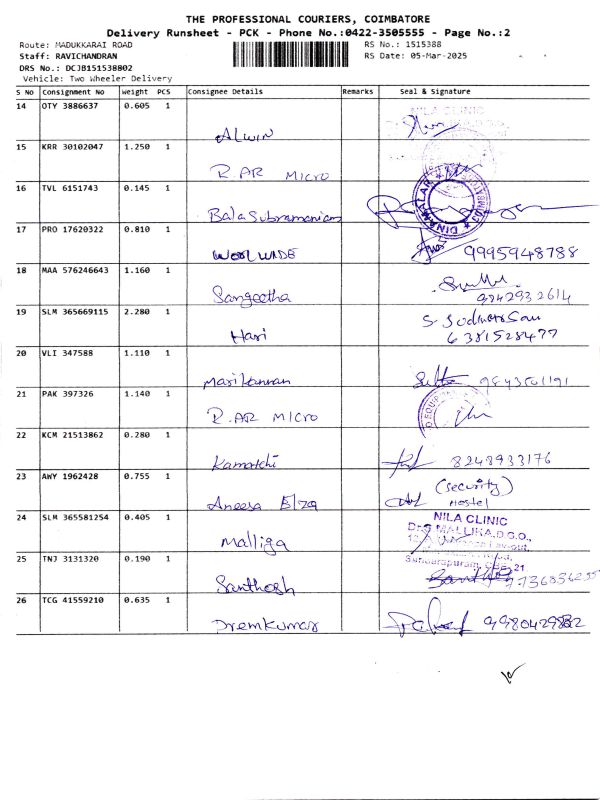 THE PROFESSIONAL COURIERS, COIMBATORE
Delivery Runsheet - PCK - Phone No.:0422-3505555 - Page No.:2
Route: MADUKKARAI ROAD
RS No.: 1515388
Staff: RAVICHANDRAN
RS Date: 05-Mar-2025
DRS No.: DCJB151538802
Vehicle: Two Wheeler Delivery
S No Consignment No Weight PCS Consignee Details Remarks Seal & Signature
14 OTY 3886637 0.605 1
NILA CLINIC
Alwin
15 KRR 30102047 1.250 1
R.AR MICRO
16 TVL 6151743 0.145 1
DINAMALAR
Balasubramaniam
17 PRO 17620322 0.810 1
9995948788
18 MAA 576246643 1.160 1
Sangeetha
9742932614
19 SLM 365669115 2.280 1
Hari 6381528477
20 VLI 347588 1.110 1
Marikannan
21 PAK 397326 1.140 1
R.AR MICRO
22 KCM 21513862 0.280 1
Kamatchi 8248933176
23 AWY 1962428 0.755 1
(Security)
Aneesa Hostel
24 SLM 365581254 0.405 1
NILA CLINIC
Dr.S MALLIKA,D.G.O.,
Malliga
25 TNJ 3131320 0.190 1
Sundarapuram, CBE-21
Santhosh
26 TCG 41559210 0.635 1
Premkumar